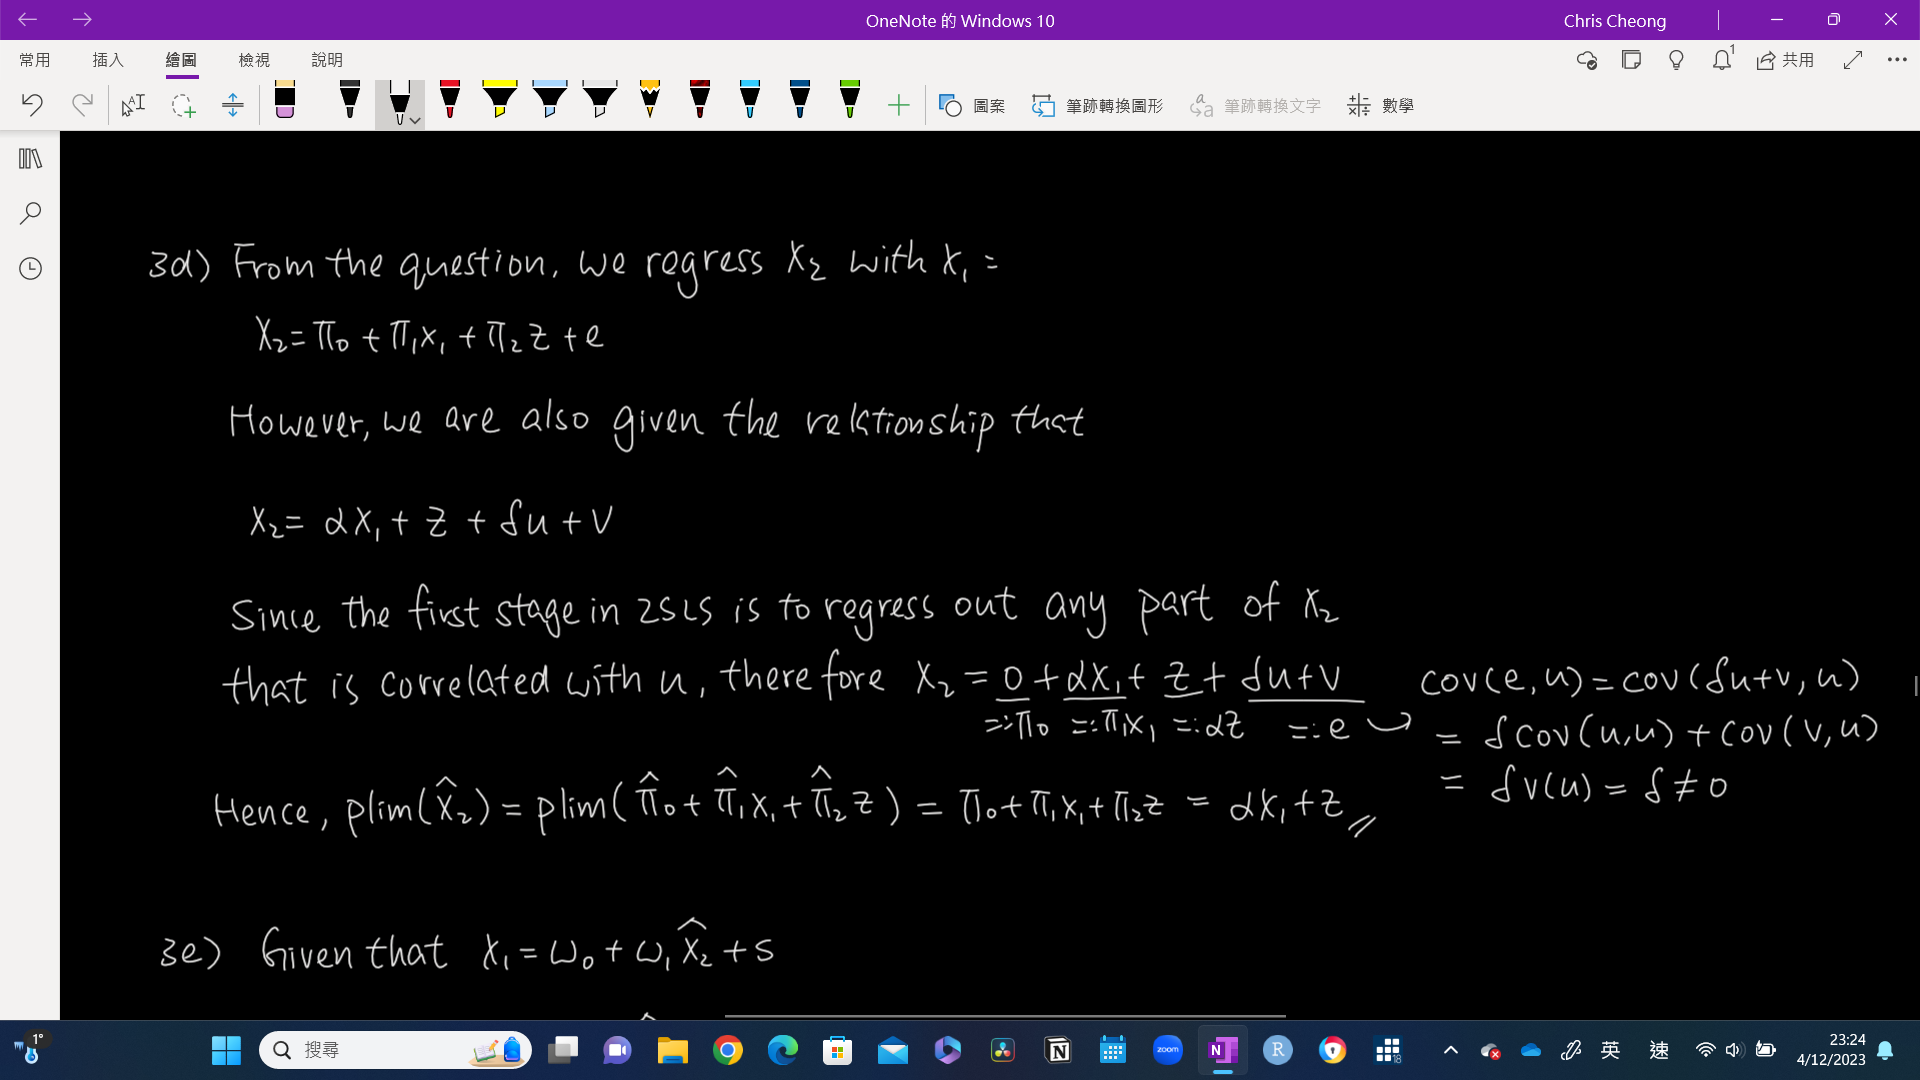 OneNote 的 Windows 10
Chris Cheong
常用 插入 繪圖 檢視 說明
1
共用
圖案 筆跡轉換圖形 筆跡轉換文字 數學
3d) From the question, we regress X₂ with X₁ =
X₂ = π₀ + π₁x₁ + π₂z + e
However, we are also given the relationship that
X₂ = αX₁ + z + δu + v
Since the first stage in 2SLS is to regress out any part of X₂
that is correlated with u, therefore X₂ = 0 + αX₁ + z + δu+v
=:π₀ =:π₁x₁ =:αz =:e
cov(e,u) = cov(δu+v, u)
= δcov(u,u) + cov(v,u)
= δv(u) = δ ≠ 0
Hence, plim(X̂₂) = plim(π̂₀ + π̂₁x₁ + π̂₂z) = π₀+π₁x₁+π₂z = αx₁+z
3e) Given that X₁ = ω₀ + ω₁X̂₂ + s
1°
搜尋
zoom
18
英 速
23:24
4/12/2023